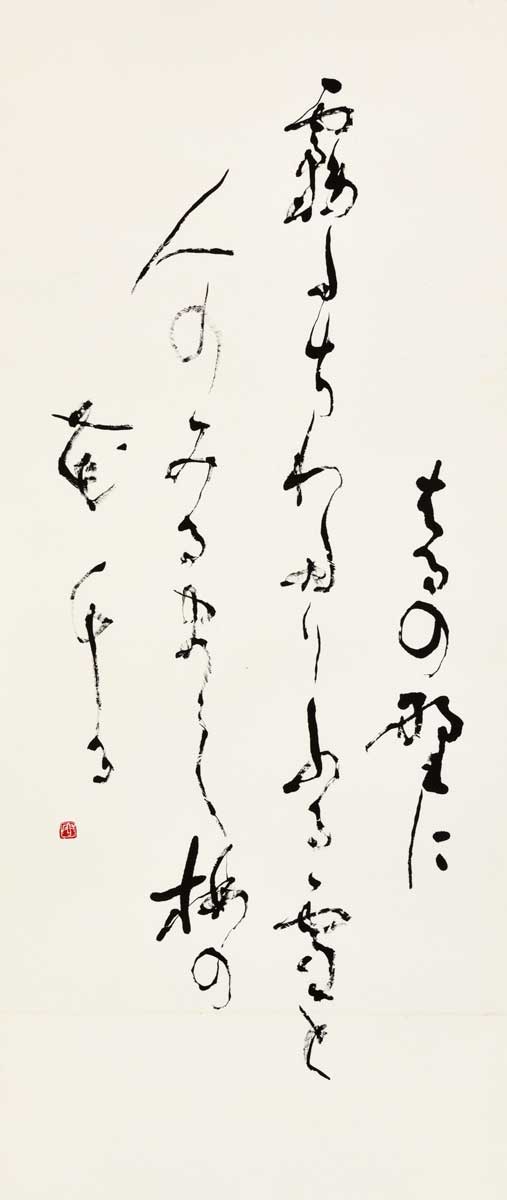 はるの野に
霧たちわたりふる雪と
人のみるまで梅の
花ちる